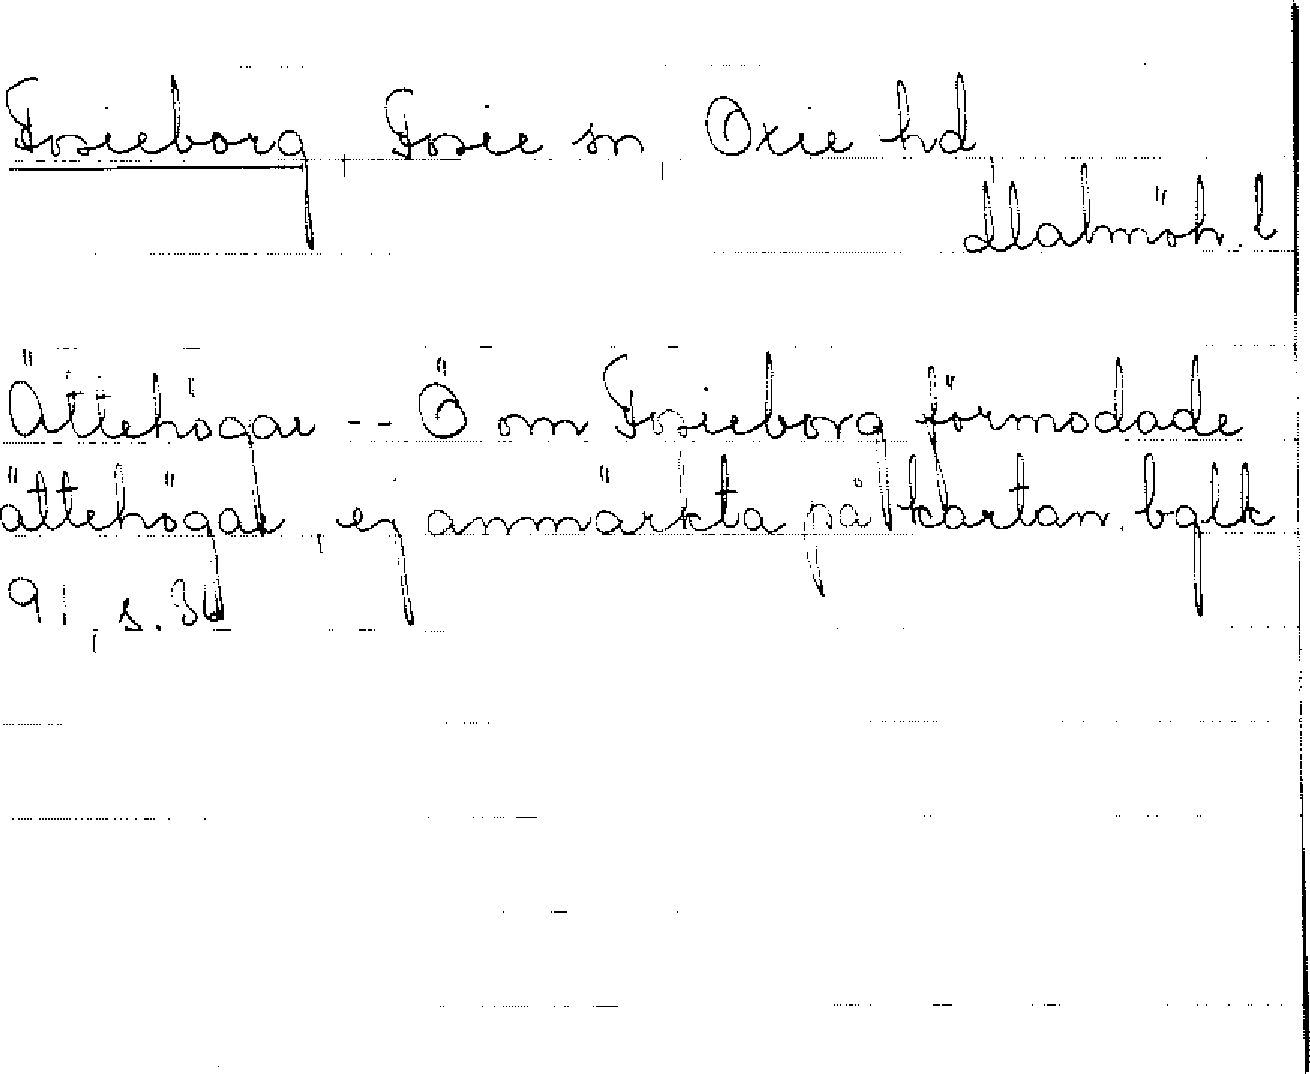 Fosieborg, Fosie sn, Oxie hd,
Malmöh. l
Ättehögar -- Ö om Fosieborg förmodade
ättehögar, ej anmärkta på kartan. bglk
91, s. 36